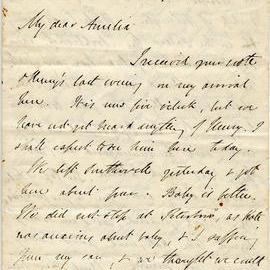 My dear Amelia
I received your note
& Henry's last evening on my arrival
here. It is now five o'clock, but we
have not yet heard anything of Henry. I
shall expect to see him here today.
We left yesterday & got
here about four. Baby is better.
We did not stop at as Kate
was anxious about baby, & I suffering
from my & we thought we could